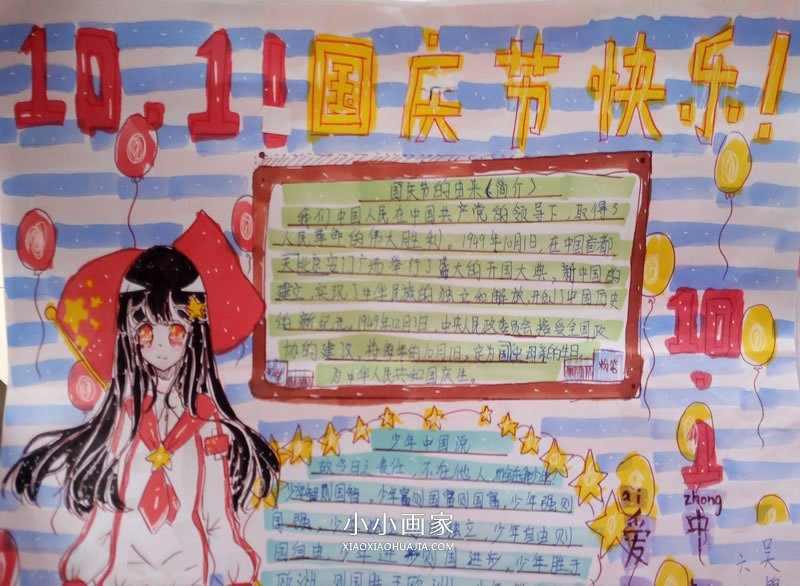 10.1!国庆节快乐!
国庆节的由来(简介)
我们中国人民在中国共产党的领导下,取得了
人民革命的伟大胜利。1949年10月1日,在中国首都
北京天安门广场举行了盛大的开国大典,新中国的
建立,实现了中华民族的独立和解放,开创了中国历史
的新纪元。1949年12月3日,中央人民政委员会接受全国政
协的建议,将每年的10月1日,定为国
为中华人民共和国庆生。
粉笔
10.1
少年中国说
故今日之责任,不在他人,
少年智则国智,少年富则国富,少年强则
国强,少 立,少年自由则
国自由,少年进步则国进步,少年胜于
欧洲,则国胜于欧洲
ai zhong
爱中
吴
六
小小画家
XIAOXIAOHUAJIA.COM